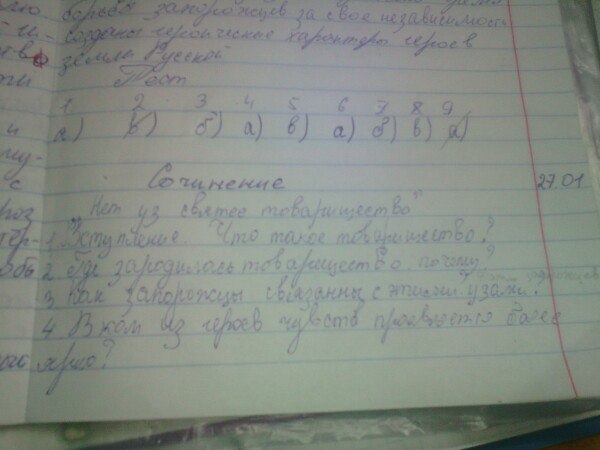 борьбе запорожцев за свое независимость
созданы героические характеры героев
земли Русской
Тест
1 2 3 4 5 6 7 8 9
а) в) б) а) в) а) б) в) а)
Сочинение 27.01
"Нет уз святее товарищество"
1 Вступление. Что такое товарищество?
2 Где зародилось товарищество почему?
3 Как запорожцы связанны с этими узами?
4 В ком из героев чувства проявляется более
ярко?